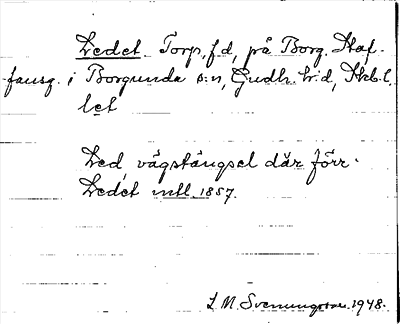 Ledet Torp, f.d., på Borg. Staf-
fansg. i Borgunda s:n, Gudh. h:d, Skb. l.
let
Led, vägstängsel där förr.
Ledét mtl. 1857.
L. M. Svenungsson. 1948.